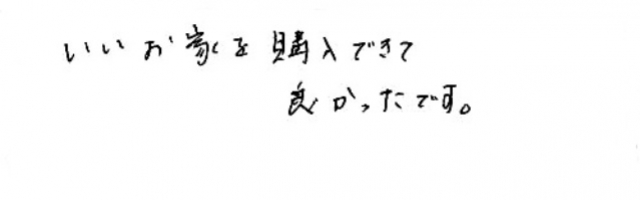 いいお家を購入できて
良かったです。